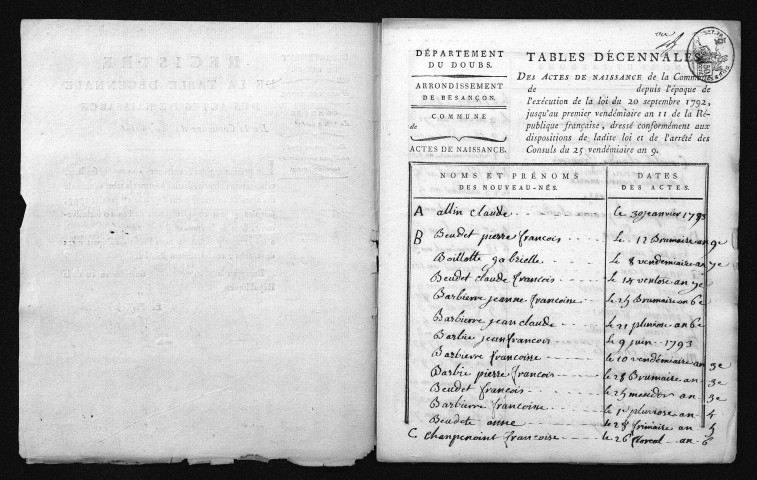 DÉPARTEMENT
DU DOUBS.
ARRONDISSEMENT
DE BESANÇON.
COMMUNE
de
ACTES DE NAISSANCE.
TABLES DÉCENNALES
DES ACTES DE NAISSANCE de la Commune
de depuis l'époque de
l'exécution de la loi du 20 septembre 1792,
jusqu'au premier vendémiaire an 11 de la Ré-
publique française, dressé conformément aux
dispositions de ladite loi et de l'arrêté des
Consuls du 25 vendémiaire an 9.
NOMS ET PRÉNOMS
DES NOUVEAU-NÉS.
DATES
DES ACTES.
A allin claude le 30 janvier 1793
B Beudet pierre francois le 12 Brumaire an 9e
Boillotte gabrielle le 8 vendemiaire an 7e
Beudet claude francois le 14 ventose an 7e
Barbierre jeanne francoise le 25 Brumaire an 6e
Barbierre jean claude le 21 pluviose an 6e
Barbie jean francois le 9 juin 1793
Barbierre francoise le 10 vendémiaire an 3e
Barbie pierre francois le 28 Brumaire an 3e
Beudet francois le 25 messidor an 3e
Barbierre francoise le 1er pluviose an 4
Beudete anne le 28 frimaire an 5
C Champenoint francoise le 26 floreal an 6
REGISTRE
DE LA TABLE DÉCENNALE
DES ACTES DE NAISSANCE